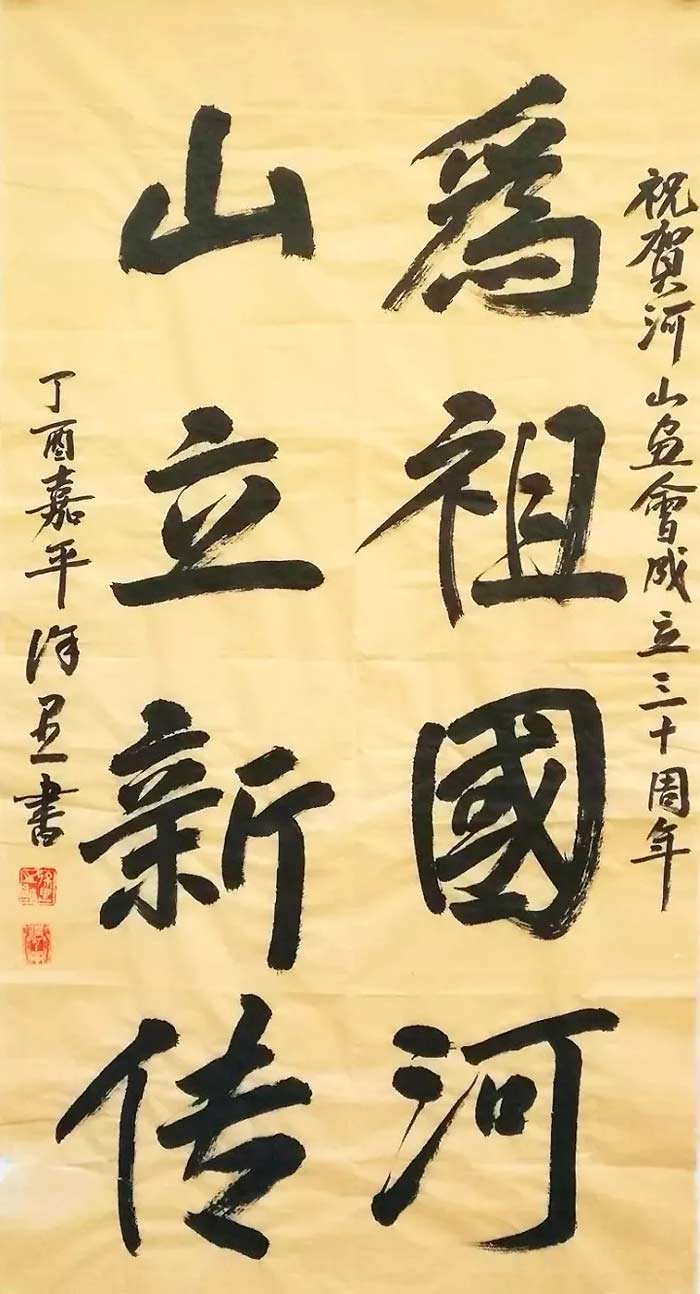 祝賀河山畫會成立三十周年
爲祖國河
山立新传
丁酉嘉平書